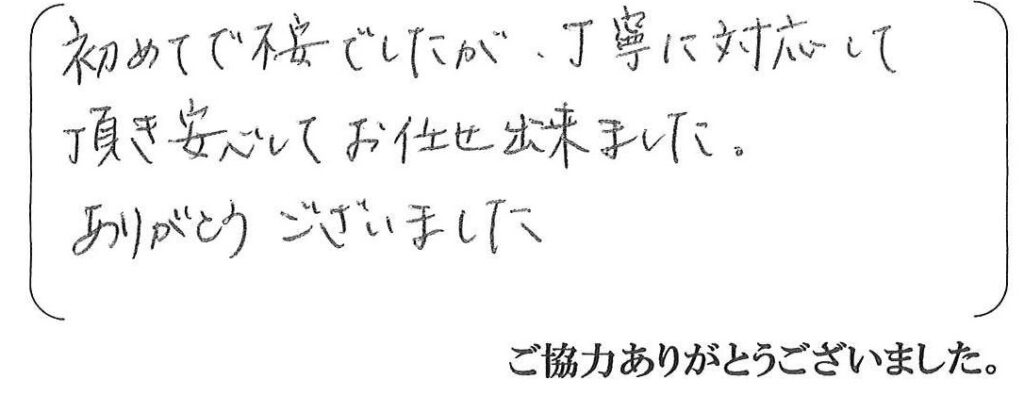 初めてで不安でしたが、丁寧に対応して
頂き安心してお任せ出来ました。
ありがとうございました
ご協力ありがとうございました。